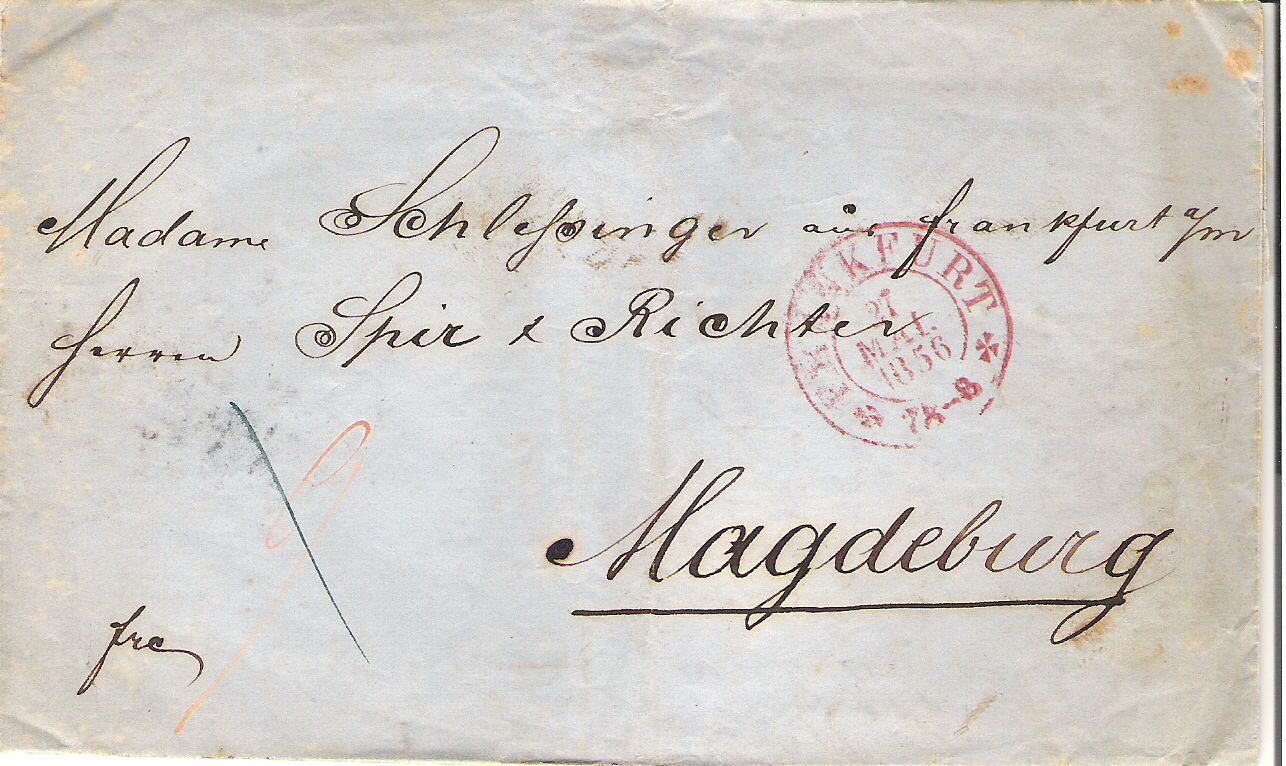 Madame Schleßinger aus Frankfurt a/m
Herren Spir & Richter
FRANKFURT
21
MAI.
1856
7½–8
Magdeburg
9
frc